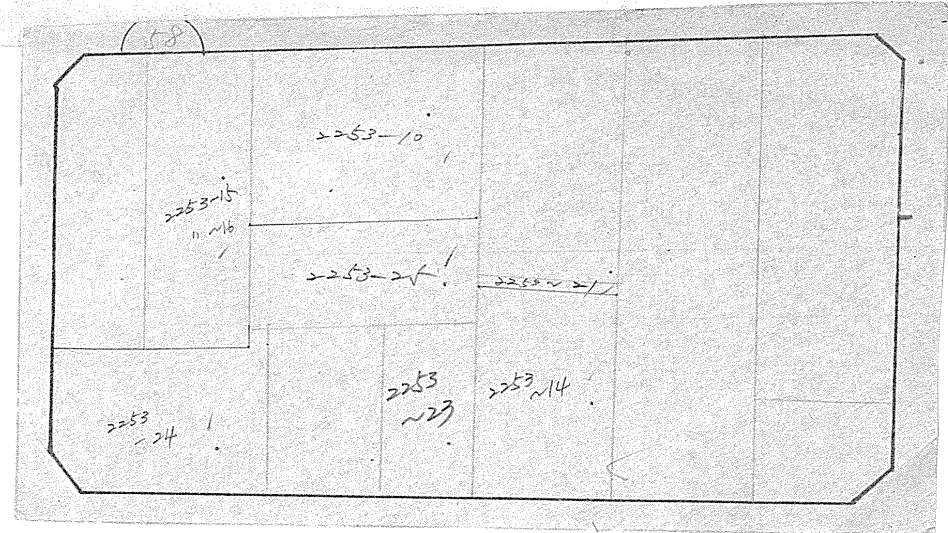 58
2253-10
2253-15
〃 ~16
2253-25
2253~21
2253
~23
2253~14
2253
-24